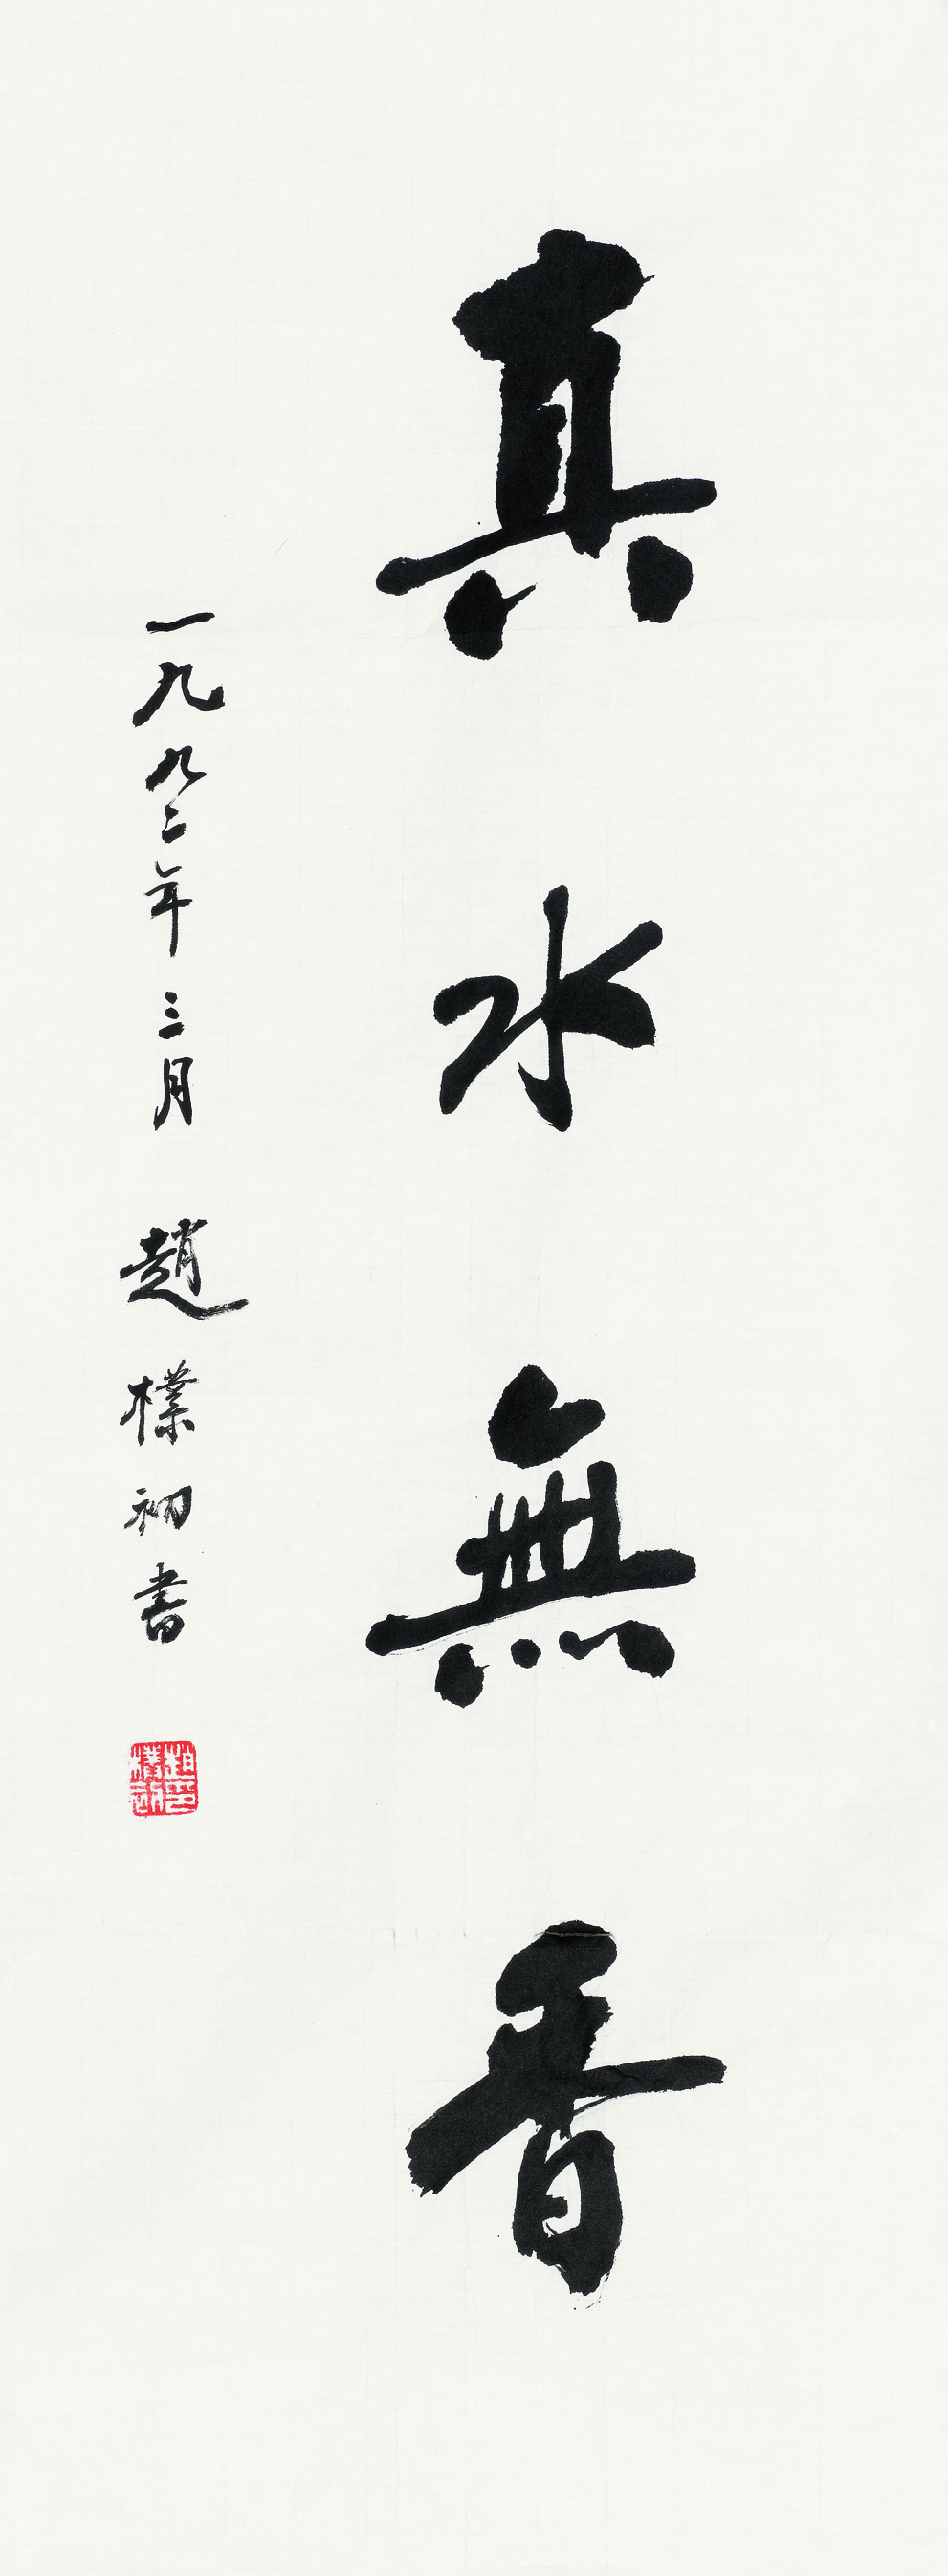 真水無香
一九九二年三月 趙樸初書